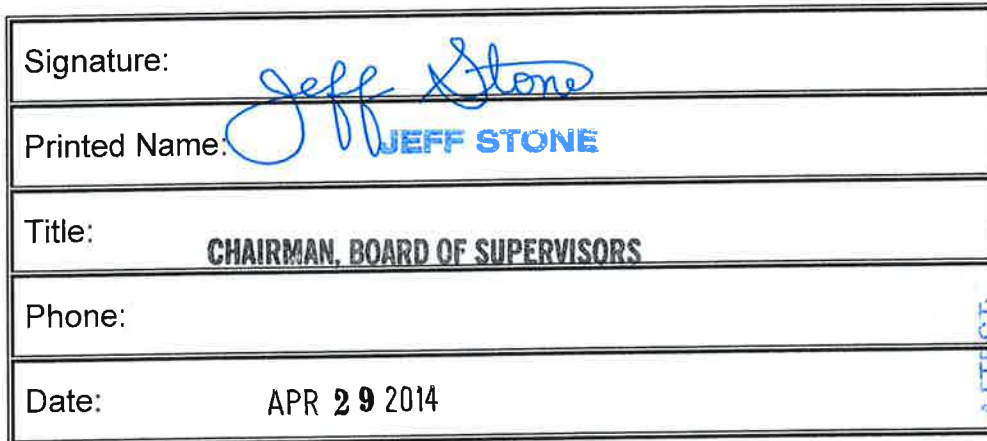 Signature: Jeff Stone
Printed Name: JEFF STONE
Title: CHAIRMAN, BOARD OF SUPERVISORS
Phone:
Date: APR 29 2014